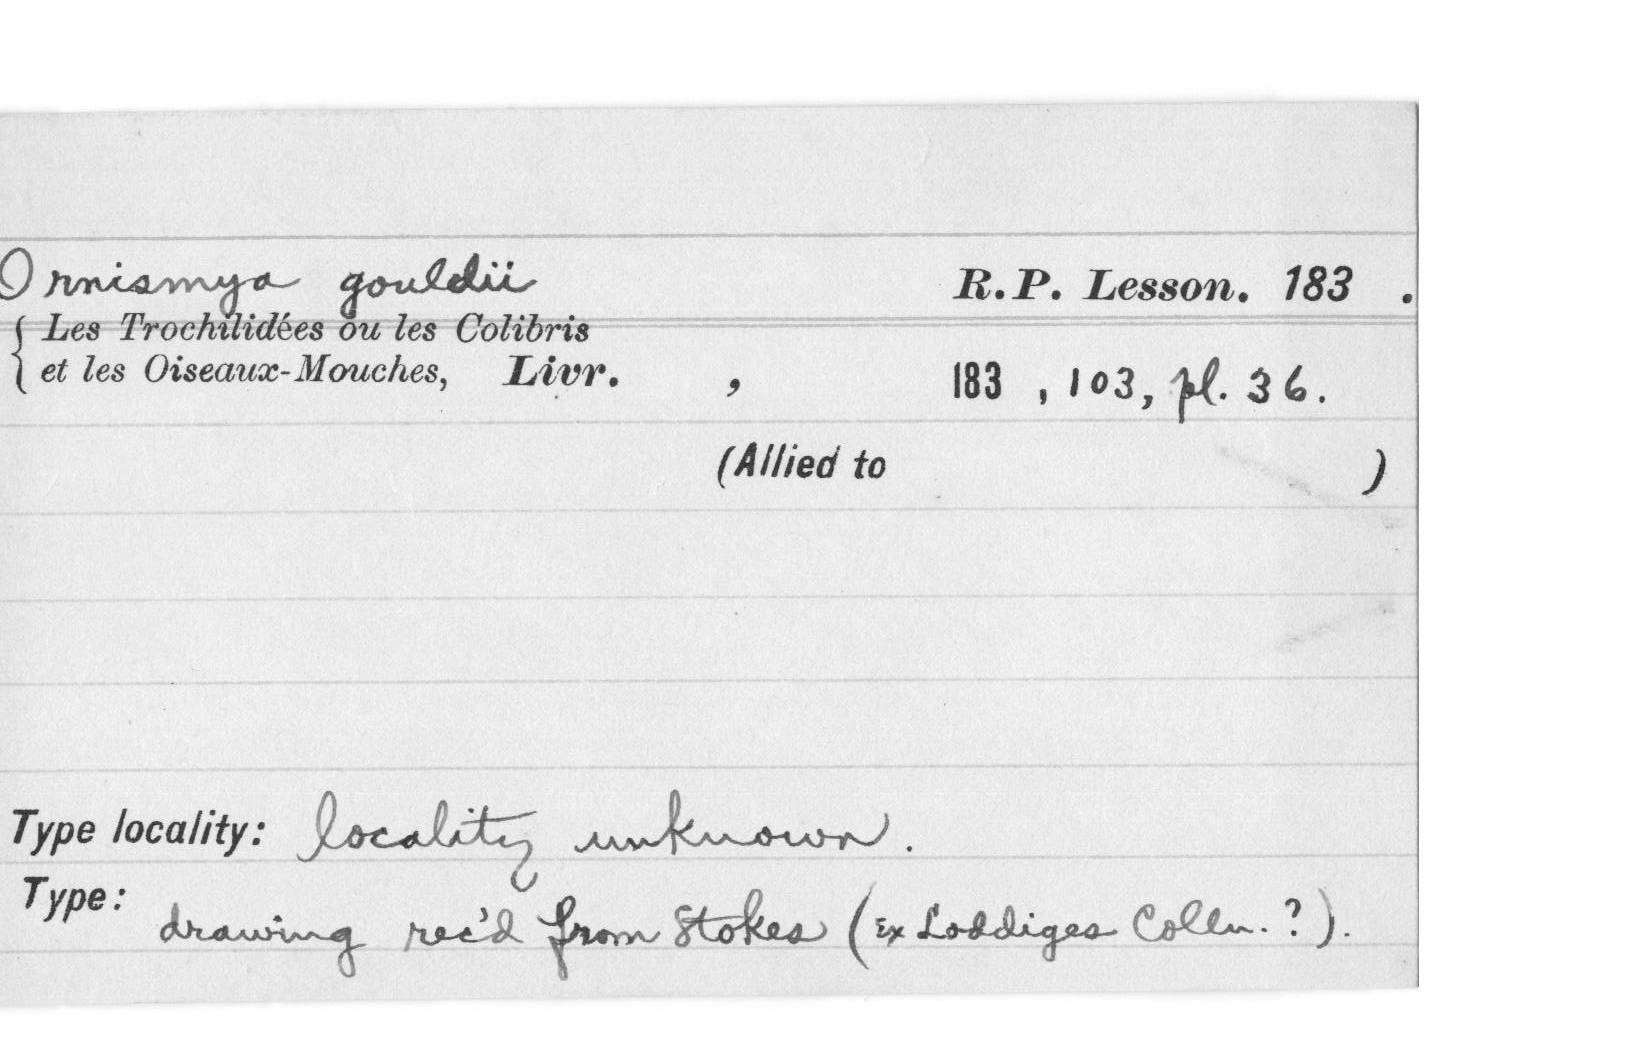 Ornismya gouldii R.P. Lesson. 183 .
{ Les Trochilidées ou les Colibris
et les Oiseaux-Mouches, Livr. , 183 , 103, pl. 36.
(Allied to )
Type locality: locality unknown.
Type: drawing rec'd from Stokes (Ex Loddiges Colln. ?).